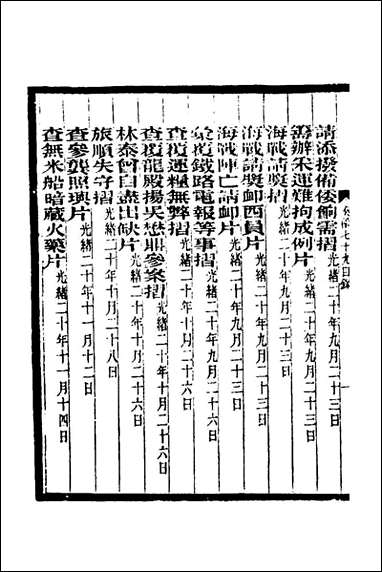 請添撥備倭餉需摺光緒二十年九月二十三日
籌辦朱運難拘成例片光緒二十年九月二十三日
海戰請奬摺光緒二十年九月二十三日
海戰請奬卹西員片光緒二十年九月二十三日
海戰陣亡請卹片光緒二十年九月二十三日
彙復鐵路電報等事摺光緒二十年九月二十九日
查復運糧無弊摺光緒二十年十月二十六日
查復龍殿揚吳懋鼎參案摺光緒二十年十月二十六日
林泰曾自盡出缺片光緒二十年十月二十六日
旅順失守摺光緒二十年十月二十八日
查參龔照璵片光緒二十年十一月十二日
查無米船暗藏火藥片光緒二十年十一月十四日